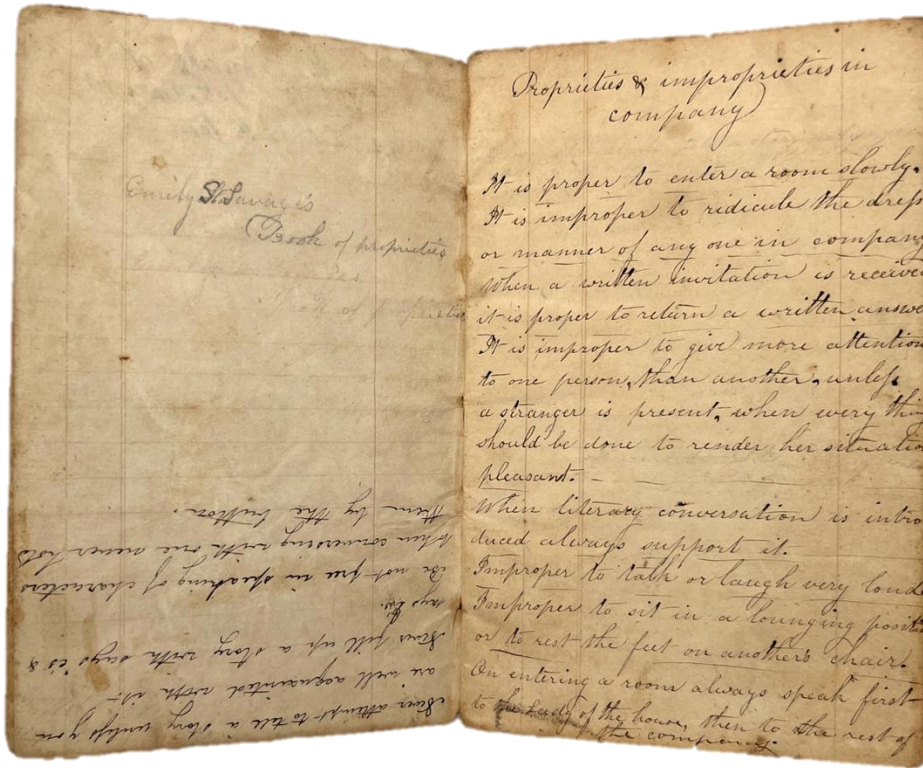 Emily S. Savage's
Book of proprieties
Never attempt to tell a story unleſs you
are well acquainted with it.-
Never fill up a story with says is &
says
Be not free in speaking of characters
When conversing with one never hold
them by the button.
Proprieties & improprieties in
company
It is proper to enter a room slowly.
It is improper to ridicule the dreſs
or manner of any one in company
When a written invitation is receive
it is proper to return a written answe
It is improper to give more attention
to one person, than another, unleſs
a stranger is present, when every thin
should be done to render her situatio
pleasant. -
When literary conversation is intro
duced always support it.
Improper to talk or laugh very loud
Improper to sit in a lounging posit
or to rest the feet on another's chair.
On entering a room always speak first
to the Lady of the house, then to the rest of
the company.